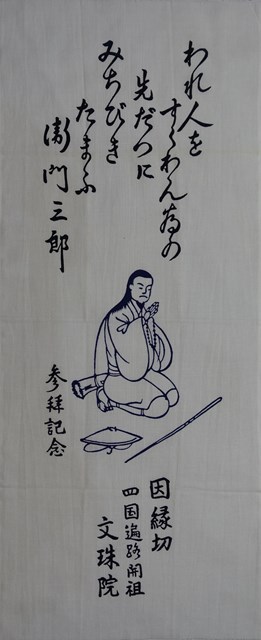 われ人を
すくわん為の
先だつに
みちびき
たまふ
衛門三郎
参拝記念
因縁切
四国遍路開祖
文珠院